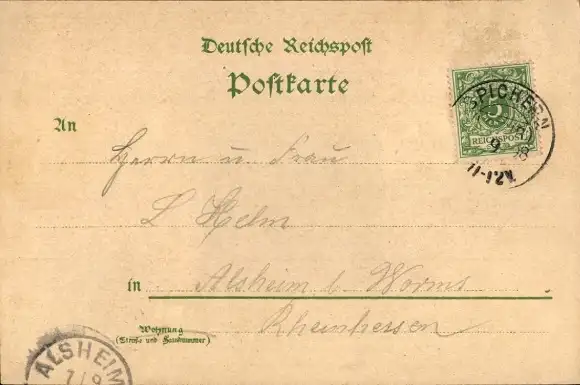 Deutsche Reichspost
Postkarte
SPICHERN
9
98
11-12V.
5
REICHSPOST
An
Herrn u. Frau
L Helm
in
Alsheim b. Worms
Rheinhessen
Wohnung
(Straße und Hausnummer)
ALSHEIM
7/9